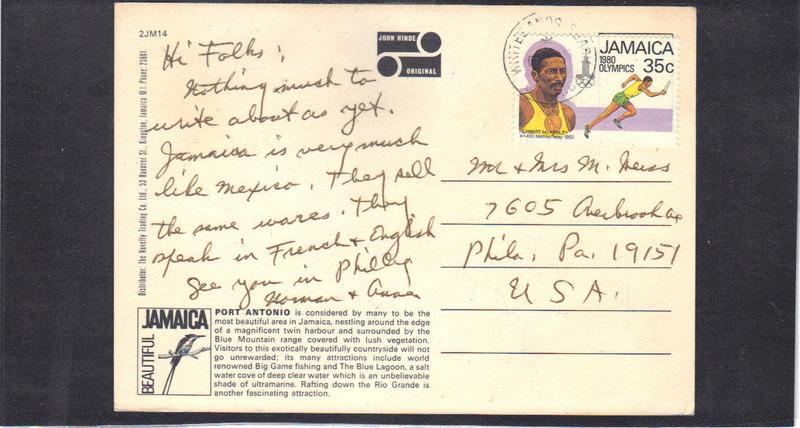 2JM14
Hi Folks;
Nothing much to
write about as yet.
Jamaica is very much
like Mexico. They sell
the same wares. They
speak in French & English
See you in Philly
Norman & Annie
Distributor: The Novelty Trading Co. Ltd., 53 Hanover St., Kingston, Jamaica W.I. Phone: 25661.
JOHN HINDE
ORIGINAL
JAMAICA
1980
OLYMPICS
35c
HERBERT McKENLEY
4×400 Metres Relay 1952
Mr & Mrs M. Weiss
7605 Overbrook Ave
Phila. Pa. 19151
U.S.A.
BEAUTIFUL
JAMAICA
PORT ANTONIO is considered by many to be the
most beautiful area in Jamaica, nestling around the edge
of a magnificent twin harbour and surrounded by the
Blue Mountain range covered with lush vegetation.
Visitors to this exotically beautifully countryside will not
go unrewarded; its many attractions include world
renowned Big Game fishing and The Blue Lagoon, a salt
water cove of deep clear water which is an unbelievable
shade of ultramarine. Rafting down the Rio Grande is
another fascinating attraction.